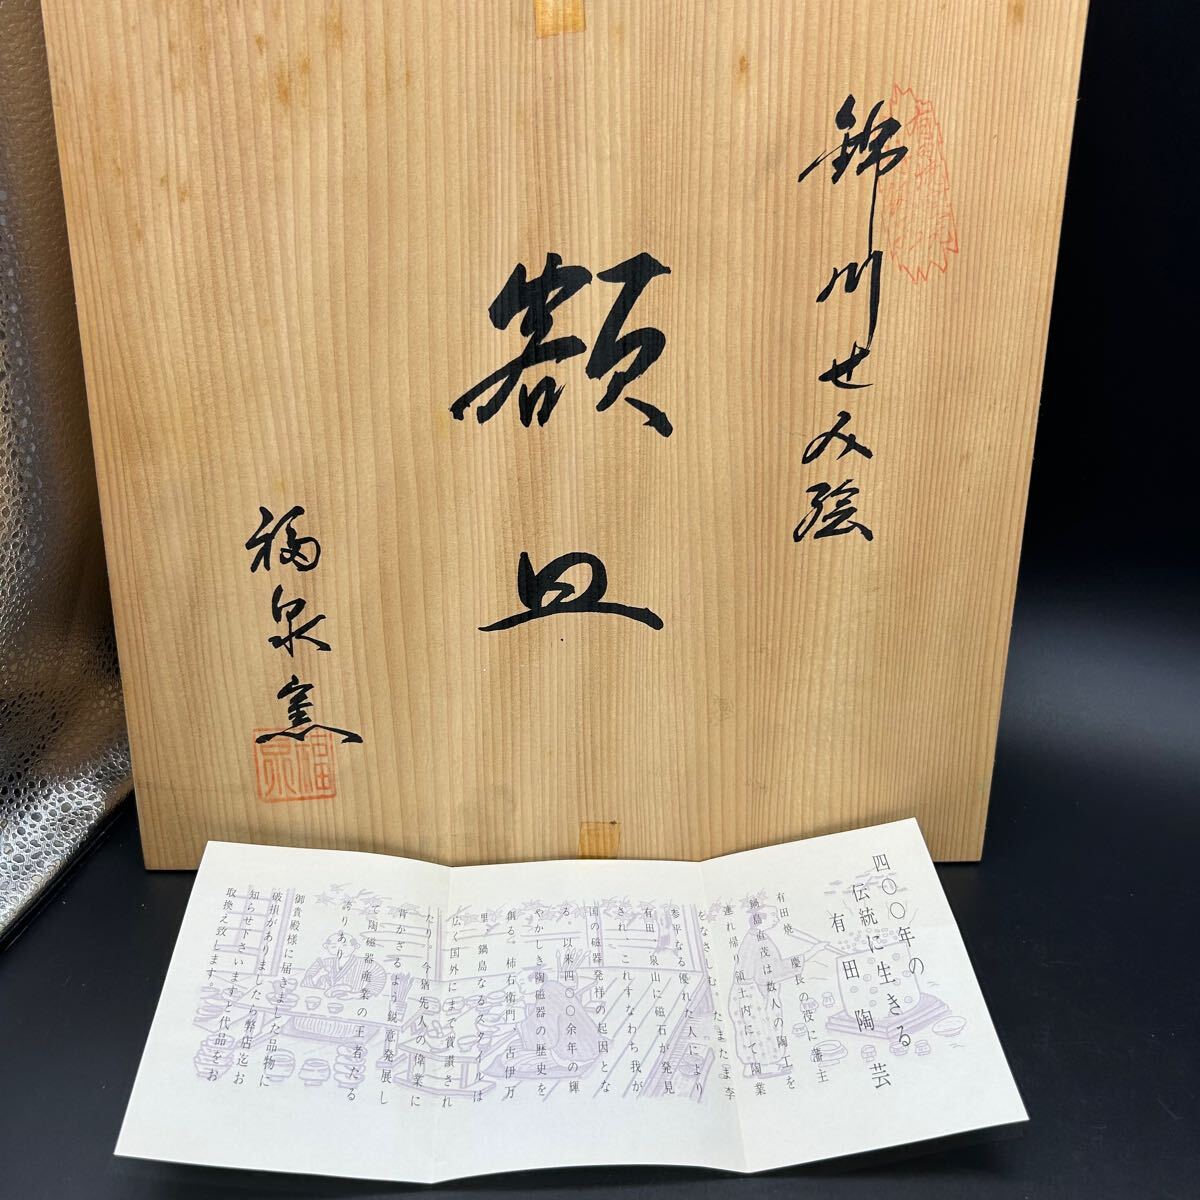 錦川せみ絵
額皿
福泉窯
福泉
四〇〇年の
伝統に生きる
有田陶芸
有田焼 慶長の役に藩主
鍋島直茂は数人の陶工を
連れ帰り領土内にて陶業
をなさしむ、たまたま李
参平なる優れた人により
有田、泉山に磁石が発見
され、これすなわち我が
国の磁器発祥の起因とな
る。以来四〇〇余年の輝
やかしき陶磁器の歴史を
創る。柿右衛門、古伊万
里、鍋島なるスタイルは
広く国外にまで賞讃され
たり。今猶先人の偉業に
背かざるよう鋭意発展し
て陶磁器産業の王者たる
誇りあり。
御貴殿様に届きました品物に
破損がありましたら弊店迄お
知らせ下さいますと代品をお
取換え致します。